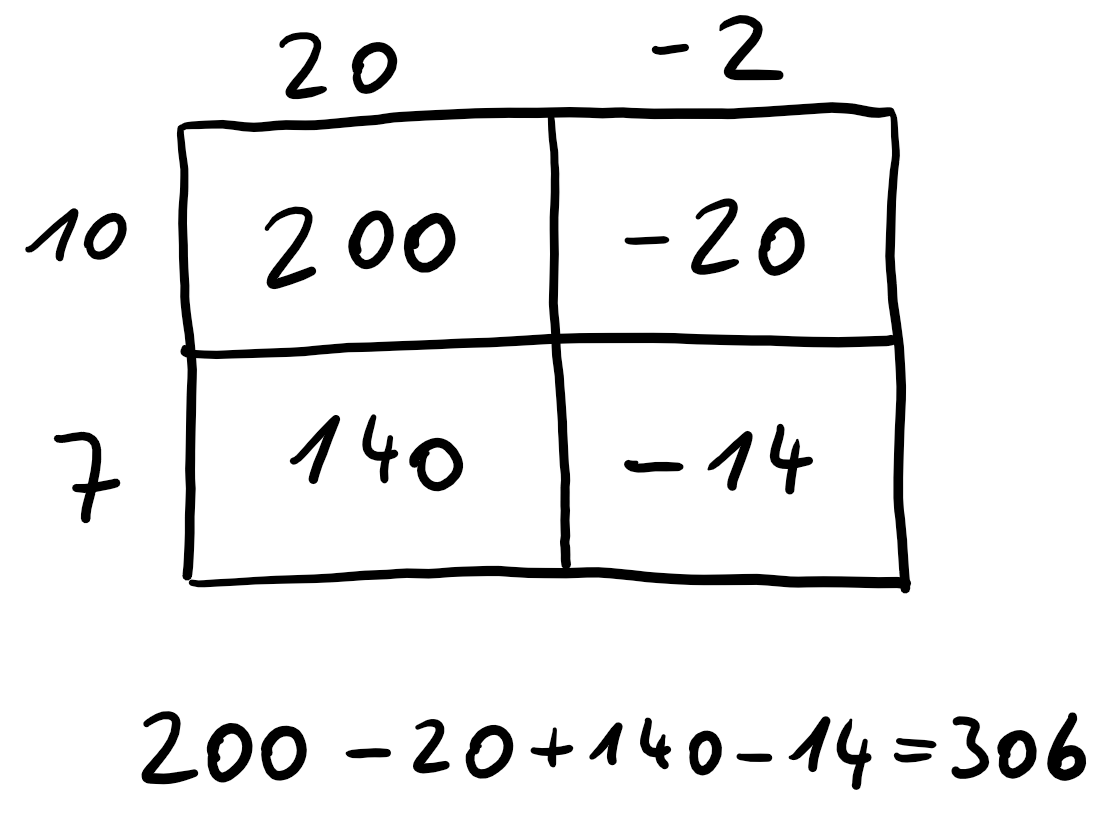 20 -2
10 200 -20
7 140 -14
200 -20 + 140 - 14 = 306